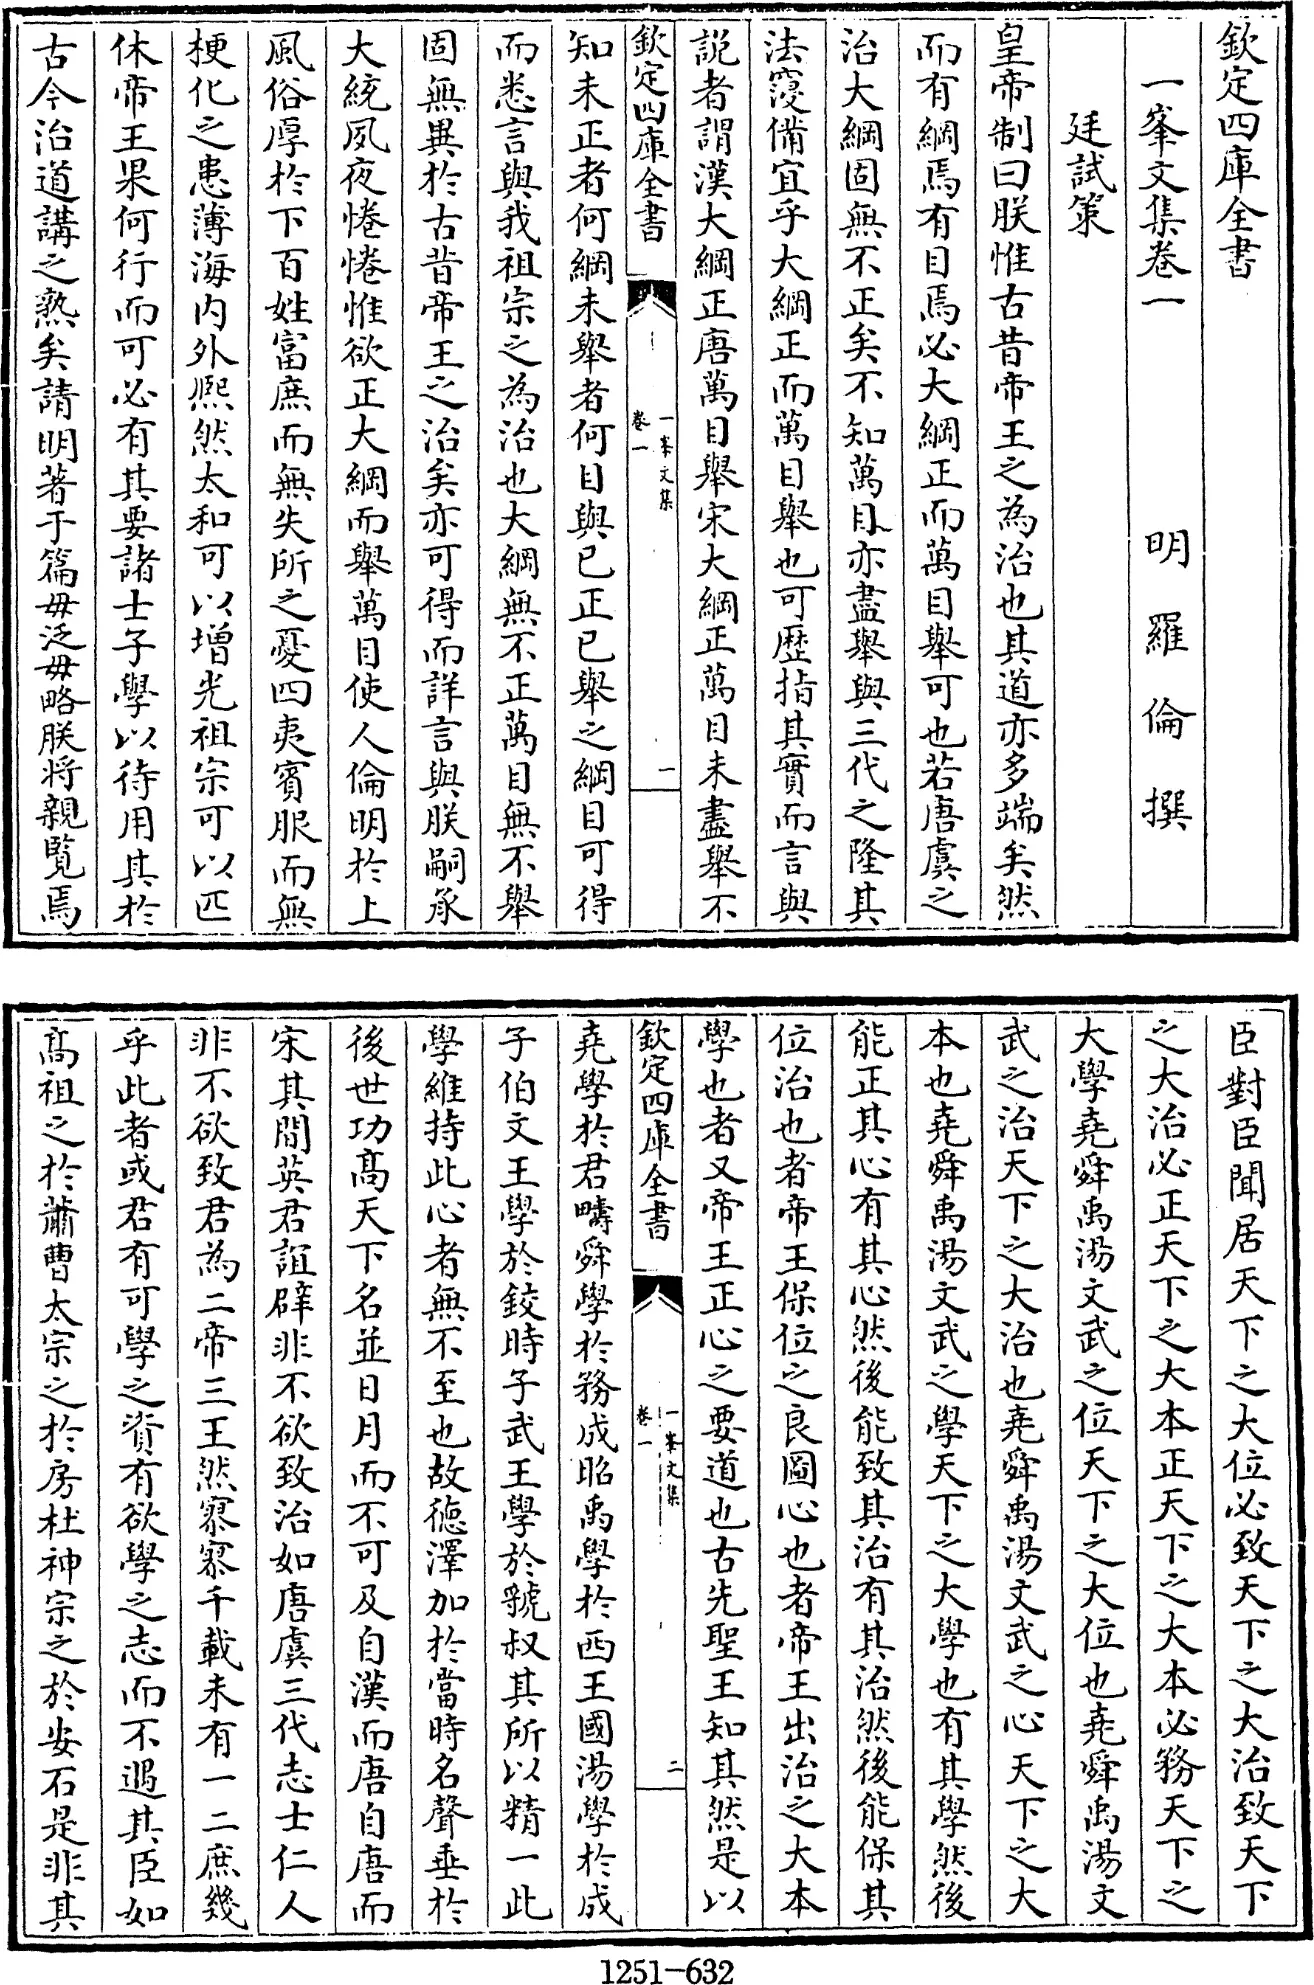 欽定四庫全書
一峯文集卷一
明羅倫撰
廷試策
皇帝制曰朕惟古昔帝王之為治也其道亦多端矣然
而有綱焉有目焉必大綱正而萬目舉可也若唐虞之
治大綱固無不正矣不知萬目亦盡舉與三代之隆其
法寖備宜乎大綱正而萬目舉也可歴指其實而言與
説者謂漢大綱正唐萬目舉宋大綱正萬目未盡舉不
欽定四庫全書
一峯文集
卷一
一
知未正者何綱未舉者何目與已正已舉之綱目可得
而悉言與我祖宗之為治也大綱無不正萬目無不舉
固無異於古昔帝王之治矣亦可得而詳言與朕嗣承
大統夙夜惓惓惟欲正大綱而舉萬目使人倫明於上
風俗厚於下百姓富庶而無失所之憂四夷賓服而無
梗化之患薄海内外熙然太和可以增光祖宗可以匹
休帝王果何行而可必有其要諸士子學以待用其於
古今治道講之熟矣請明著于篇毋泛毋略朕將親覽焉
臣對臣聞居天下之大位必致天下之大治致天下
之大治必正天下之大本正天下之大本必務天下之
大學堯舜禹湯文武之位天下之大位也堯舜禹湯文
武之治天下之大治也堯舜禹湯文武之心天下之大
本也堯舜禹湯文武之學天下之大學也有其學然後
能正其心有其心然後能致其治有其治然後能保其
位治也者帝王保位之良圖心也者帝王出治之大本
學也者又帝王正心之要道也古先聖王知其然是以
欽定四庫全書
一峯文集
卷一
二
堯學於君疇舜學於務成昭禹學於西王國湯學於成
子伯文王學於鉸時子武王學於虢叔其所以精一此
學維持此心者無不至也故徳澤加於當時名聲垂於
後世功髙天下名並日月而不可及自漢而唐自唐而
宋其間英君誼辟非不欲致治如唐虞三代志士仁人
非不欲致君為二帝三王然寥寥千載未有一二庶幾
乎此者或君有可學之資有欲學之志而不遇其臣如
髙祖之於蕭曹太宗之於房杜神宗之於安石是非其
1251-632